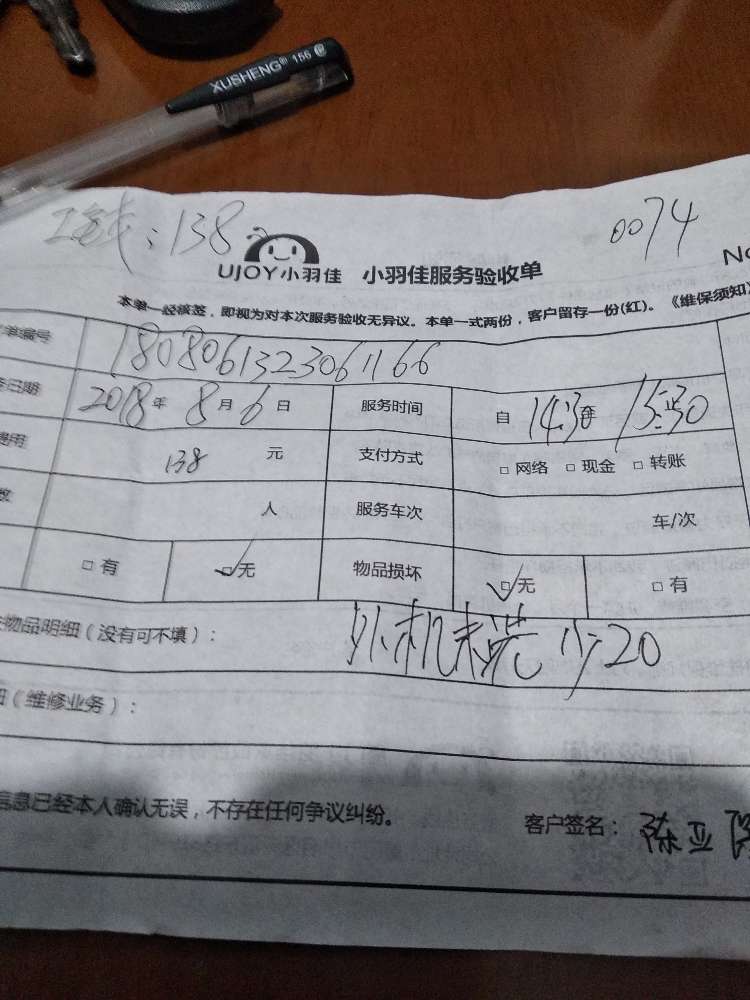 XUSHENG® 156
:138
0074
UJOY小羽佳 小羽佳服务验收单
No
本单一经核签，即视为对本次服务验收无异议。本单一式两份，客户留存一份(红)。《维保须知》
单编号 1808061323061166
日期 2018年 8月6日 服务时间 自 14:30 至 15:30
费用 138 元 支付方式 □ 网络 □ 现金 □ 转账
数 人 服务车次 车/次
□ 有 □ 无 物品损坏 □ 无 □ 有
物品明细（没有可不填）： 外机未洗 少20
（维修业务）：
信息已经本人确认无误，不存在任何争议纠纷。
客户签名：陈亚